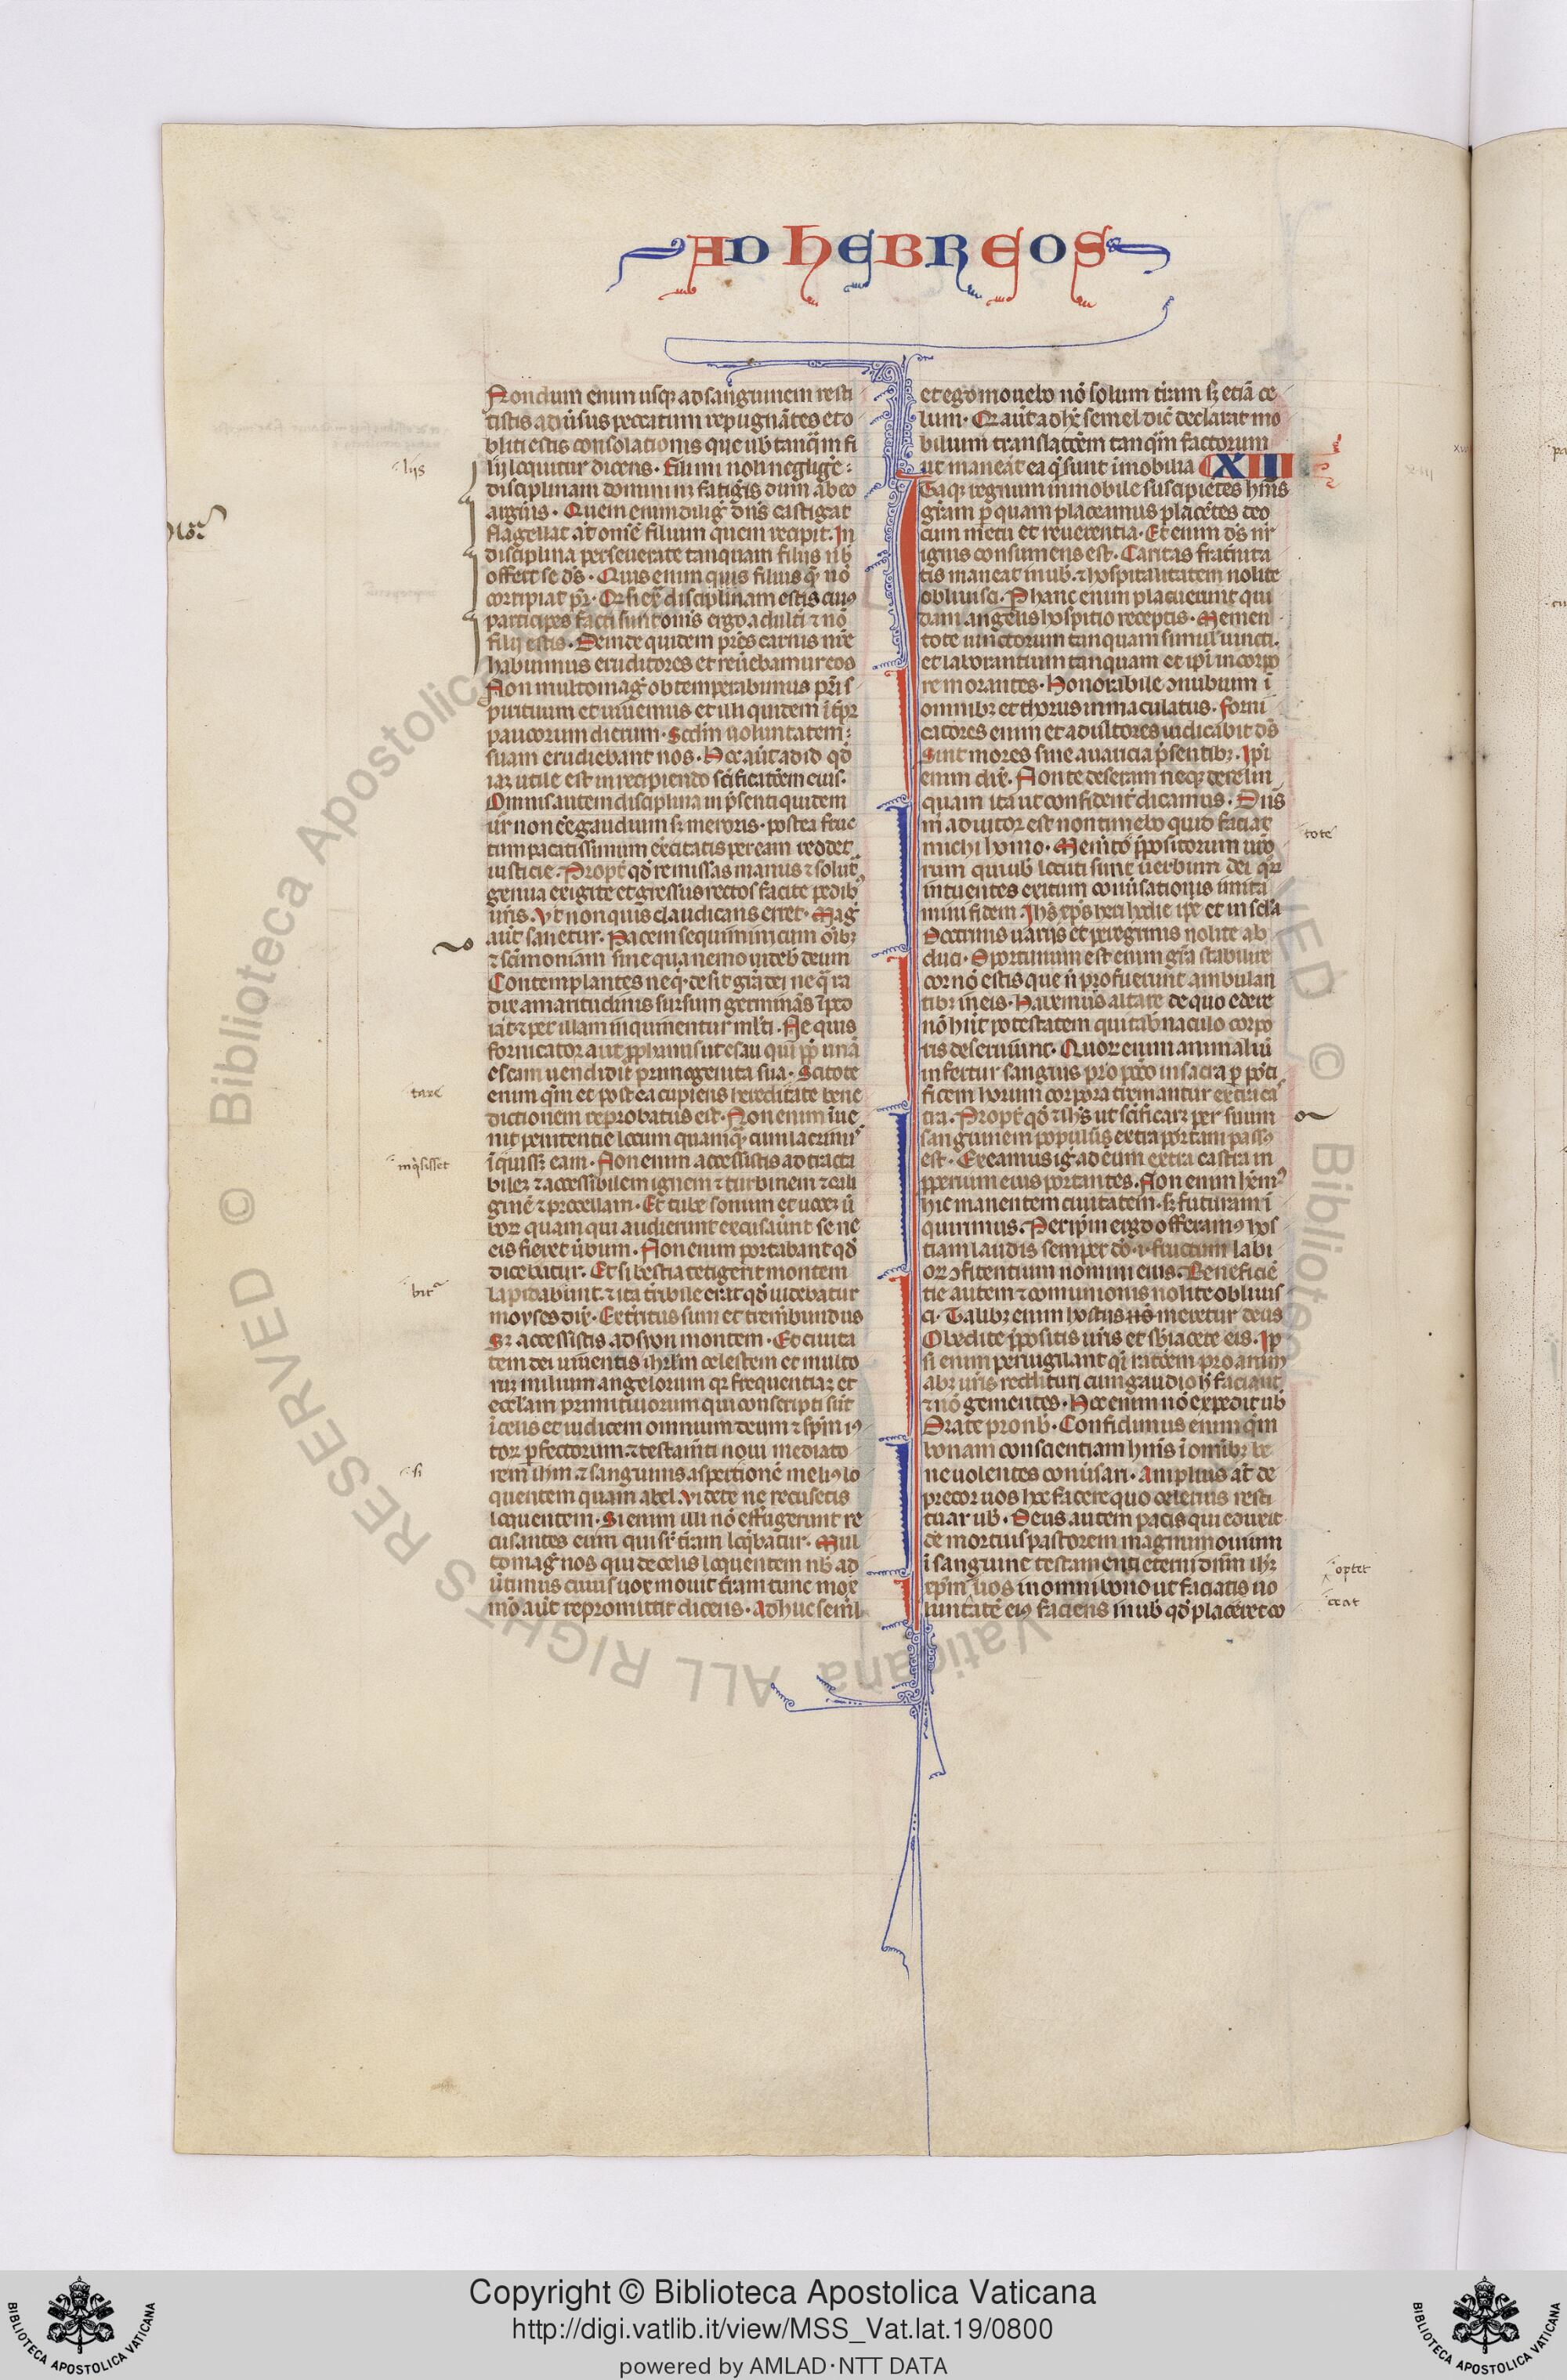 AD HEBREOS
Nondum enim usq; ad sanguinem resti
tistis adũsus peccatum repugnãtes et o
bliti estis consolationis que uob tanq̃ʒ fi
lijs
lij loquitur dicens · Fili mi noli neglige:
disciplinam domini nʒ fatigẽis dum ab eo
arguis · Quem enim dilig̃ dñs castigat
flagellat aũt omẽ filium quem recipit. In
disciplina perseuerate tanquam filijs ũb
offert se dš · Quis enim quis filius q̃ nõ
corripiat pr̃ · Qr si ex̃ disciplinam estis cui9
participes facti sunt om̃s ergo adulti ⁊ nõ
filij estis · Deinde quidem p̃res carnis nr̃e
habuimus eruditores et reũebamur eos
Non multo mag̃ obtemperabimus p̃ri s
pirituum et uiuemus et illi quidem ĩ tp̃r
paucorum dierum · Scd̃m uoluntatem:
suam erudiebant nos · Hec aũt ad id qd̃
iaʒ utile est in recipiendo sc̃ificatõem eius·
Omnis autem disciplina in p̃senti quidem
ur̃ non eẽ gaudium sʒ meroris · postea fruc
tum pacatissimum exercitatis per eam reddet
iusticie · Propt̃ qd̃ remissas manus ⁊ solut̃
genua erigite et gressus rectos facite pedib
ur̃is · Vt non quis claudicans erret · Mag̃
aũt sanetur · Pacem sequimini cum oĩbʒ
⁊ sc̃imoniam sine qua nemo uideb̃ deum
Contemplantes neq̃ desit grã dei ne q̃ ra
dix amaritudinis sursum germinãs ĩpeo
iat ⁊ per illam inquinentur ml̃ti · Ne quis
fornicator aut p̃phanus ut esau qui p̃p̃ unã
escam uendidit primogenita sua · Scitote
tare
enim qm̃ et postea cupiens hereditate bene
dictionem reprobatus est · Non enim ĩue
nit penitentie locum quamq̃ cum lacrimis
inq̃sisset
ĩquissʒ eam · Non enim accessistis ad tracta
bileʒ ⁊ accessibilem ignem ⁊ turbinem ⁊ cali
ginẽ ⁊ procellam · Et tube sonum et uoceʒ ũ
borʒ quam qui audierunt excusaũnt se ne
eis fieret ũbum · Non enim portabant qd̃
dicebatur · Et si bestia tetigerit montem
bitr̃
lapidabũnt · ⁊ ita tribile erat qd̃ uidebatur
moyses dix̃ · Extritus sum et tremebundus
Sʒ accessistis ad syon montem · Et ciuita
tem dei uiuentis ihrlm̃ celestem et multo
ruʒ milium angelorum qr frequentiaʒ et
eccl̃am primitiuorum qui conscripti sũt
ĩ celis et iudicem omnium deum ⁊ spm̃ i9
torʒ p̃fectorum · ⁊ testam̃ti noui mediato
si
rem ihm̃ · ⁊ sanguinis aspersionẽ meli9 lo
quentem quam abel · Videte ne recusetis
loquentem · Si enim illi nõ effugerunt re
cusantes eum qui sr̃ terram loq̃batur · Mul
to mag̃ nos qui de celis loquentem nb̃ ad
ũtimus cuius uox mouit tram tunc mõ e
mõ aũt repromittit dicens · Adhuc semẽl
et ego mouebo nõ solum trãm sʒ etiã ce
lum · Qr aũt adhʒ semel dic̃ declarat mo
bilium translatõem tanq̃m factorum
ut maneãt ea q̃ sunt ĩmobilia XIII
Itaqʒ regnum inmobile suscipiẽtes hm̃s
grãm p quam placeamus placẽtes deo
cum metu et reuerentia · Et enim dš nr̃
ignis consumens est · Caritas frat̃nita
tis maneat in uob · ⁊ hospitalitatem nolite
obliuisci · P hanc enim placuerunt qui
dam angelis hospitio receptis · Memen
tote uinctorum tanquam simul uincti ·
et laborantium tanquam et ip̃i in corpo
re morantes · Honorabile ɔnubium ĩ
omnibʒ et thorus inmaculatus · Forni
catores enim et adultores iudicabit dš
Sint mores sine auaricia p̃sentibʒ · Ip̃e
enim dix̃ · Non te deseram neqʒ derelin
quam ita ut confident̃ dicamus · Dñs
tote
m̃ adiutor est non timebo quid faciat
michi homo · Mem̃to p̃positorum uro
rum qui uob locuti sunt uerbum dei qr̃
intuentes exitum conũsationis imita
mini fidem · Ihs̃ xp̃s heri hodie ipe et in scl̃a
Doctrinis uarijs et peregrinis nolite ab
duci · Optimum est enim grã stabilire
cor nõ estis que ñ profuerunt ambulan
tibʒ in eis · Habemus altare de quo edere
nõ hũt potestatem qui tab̃naculo corpo
ris deseruiunt · Quorʒ enim animaliũ
infertur sanguis pro pctõ in sacra p põti
ficem horum corpora cremantur extra ca
stra · Propt̃ qd̃ ⁊ ihs̃ ut sc̃ificarʒ per suum
sanguinem populus extra portam pass9
est · Exeamus ig̃ ad eum extra castra im
pperium eius portantes · Non enim hem9
hic manentem ciuitatem · sʒ futuram ĩ
quirimus · Per ip̃m ergo offeram9 hos
tiam laudis semper dõ · i · fructum labi
orʒ ɔfitentium nomini eius · Beneficiẽ
tie autem ⁊ comunionis nolite obliuis
ci · Talibʒ enim hostijs meretur deus
Obedite p̃positis ur̃is et sbiacete eis · Ip̃
si enim peruigilant q̃i ratõem pro anim
abʒ ur̃is reddituri cum gaudio h̃ faciant
⁊ nõ gementes · Hoc enim nõ expedit uob
Orate pro nob · Confidimus enim qm̃
bonam conscientiam hm̃s ĩ omnibʒ be
neuolentes conũsari · Amplius aũt de
precor uos hoc facere quo celerius resti
tuar uob · Deus autem pacis qui eduxit
de mortuis pastorem magnum ouium
optet
ĩ sanguine testamenti eterni dñm ihʒ
ceat
xp̃m uos in omni bono ut faciatis uo
luntatẽ ei9 faciens in uob qd̃ placeret co
Copyright © Biblioteca Apostolica Vaticana
http://digi.vatlib.it/view/MSS_Vat.lat.19/0800
powered by AMLAD·NTT DATA